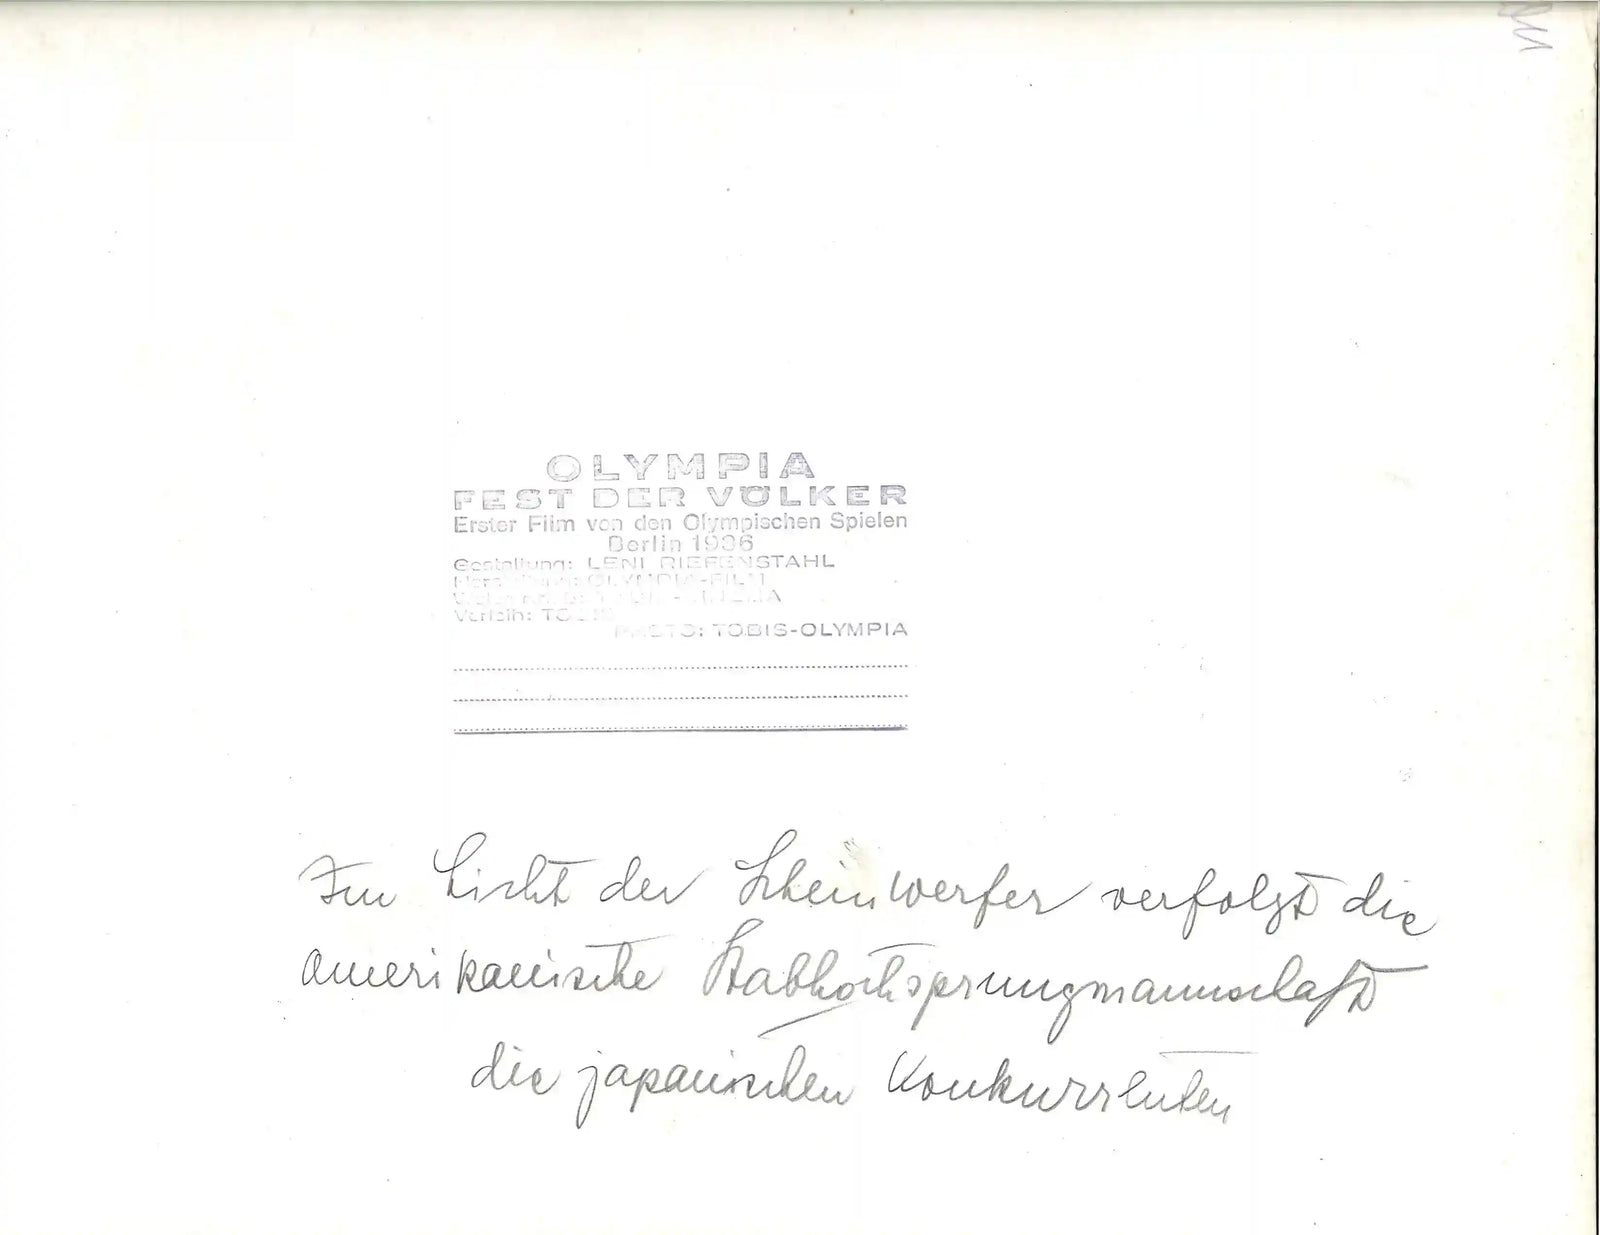 OLYMPIA
FEST DER VÖLKER
Erster Film von den Olympischen Spielen
Berlin 1936
Gestaltung: LENI RIEFENSTAHL
OLYMPIA-FILM
Verleih: TOBIS
PHOTO: TOBIS-OLYMPIA
Im Licht der Scheinwerfer verfolgt die
amerikanische Stabhochsprungmannschaft
die japanischen Konkurrenten